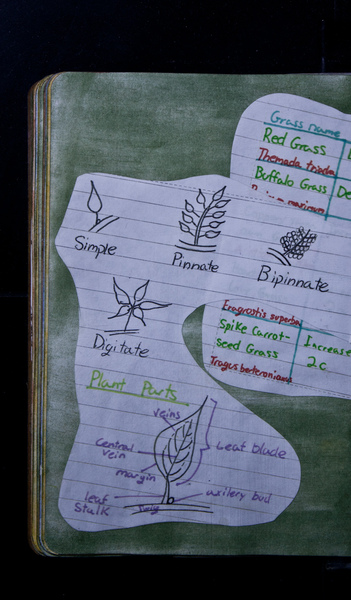 Grass name
Red Grass
Themeda triandra
Buffalo Grass
De
maximum
Simple
Pinnate
Bipinnate
Digitate
Eragrostis superba
Spike Carrot-
seed Grass
Increase
2c
Tragus berteronianus
Plant Parts
veins
Leaf blade
central
vein
margin
leaf
stalk
axillery bud
twig